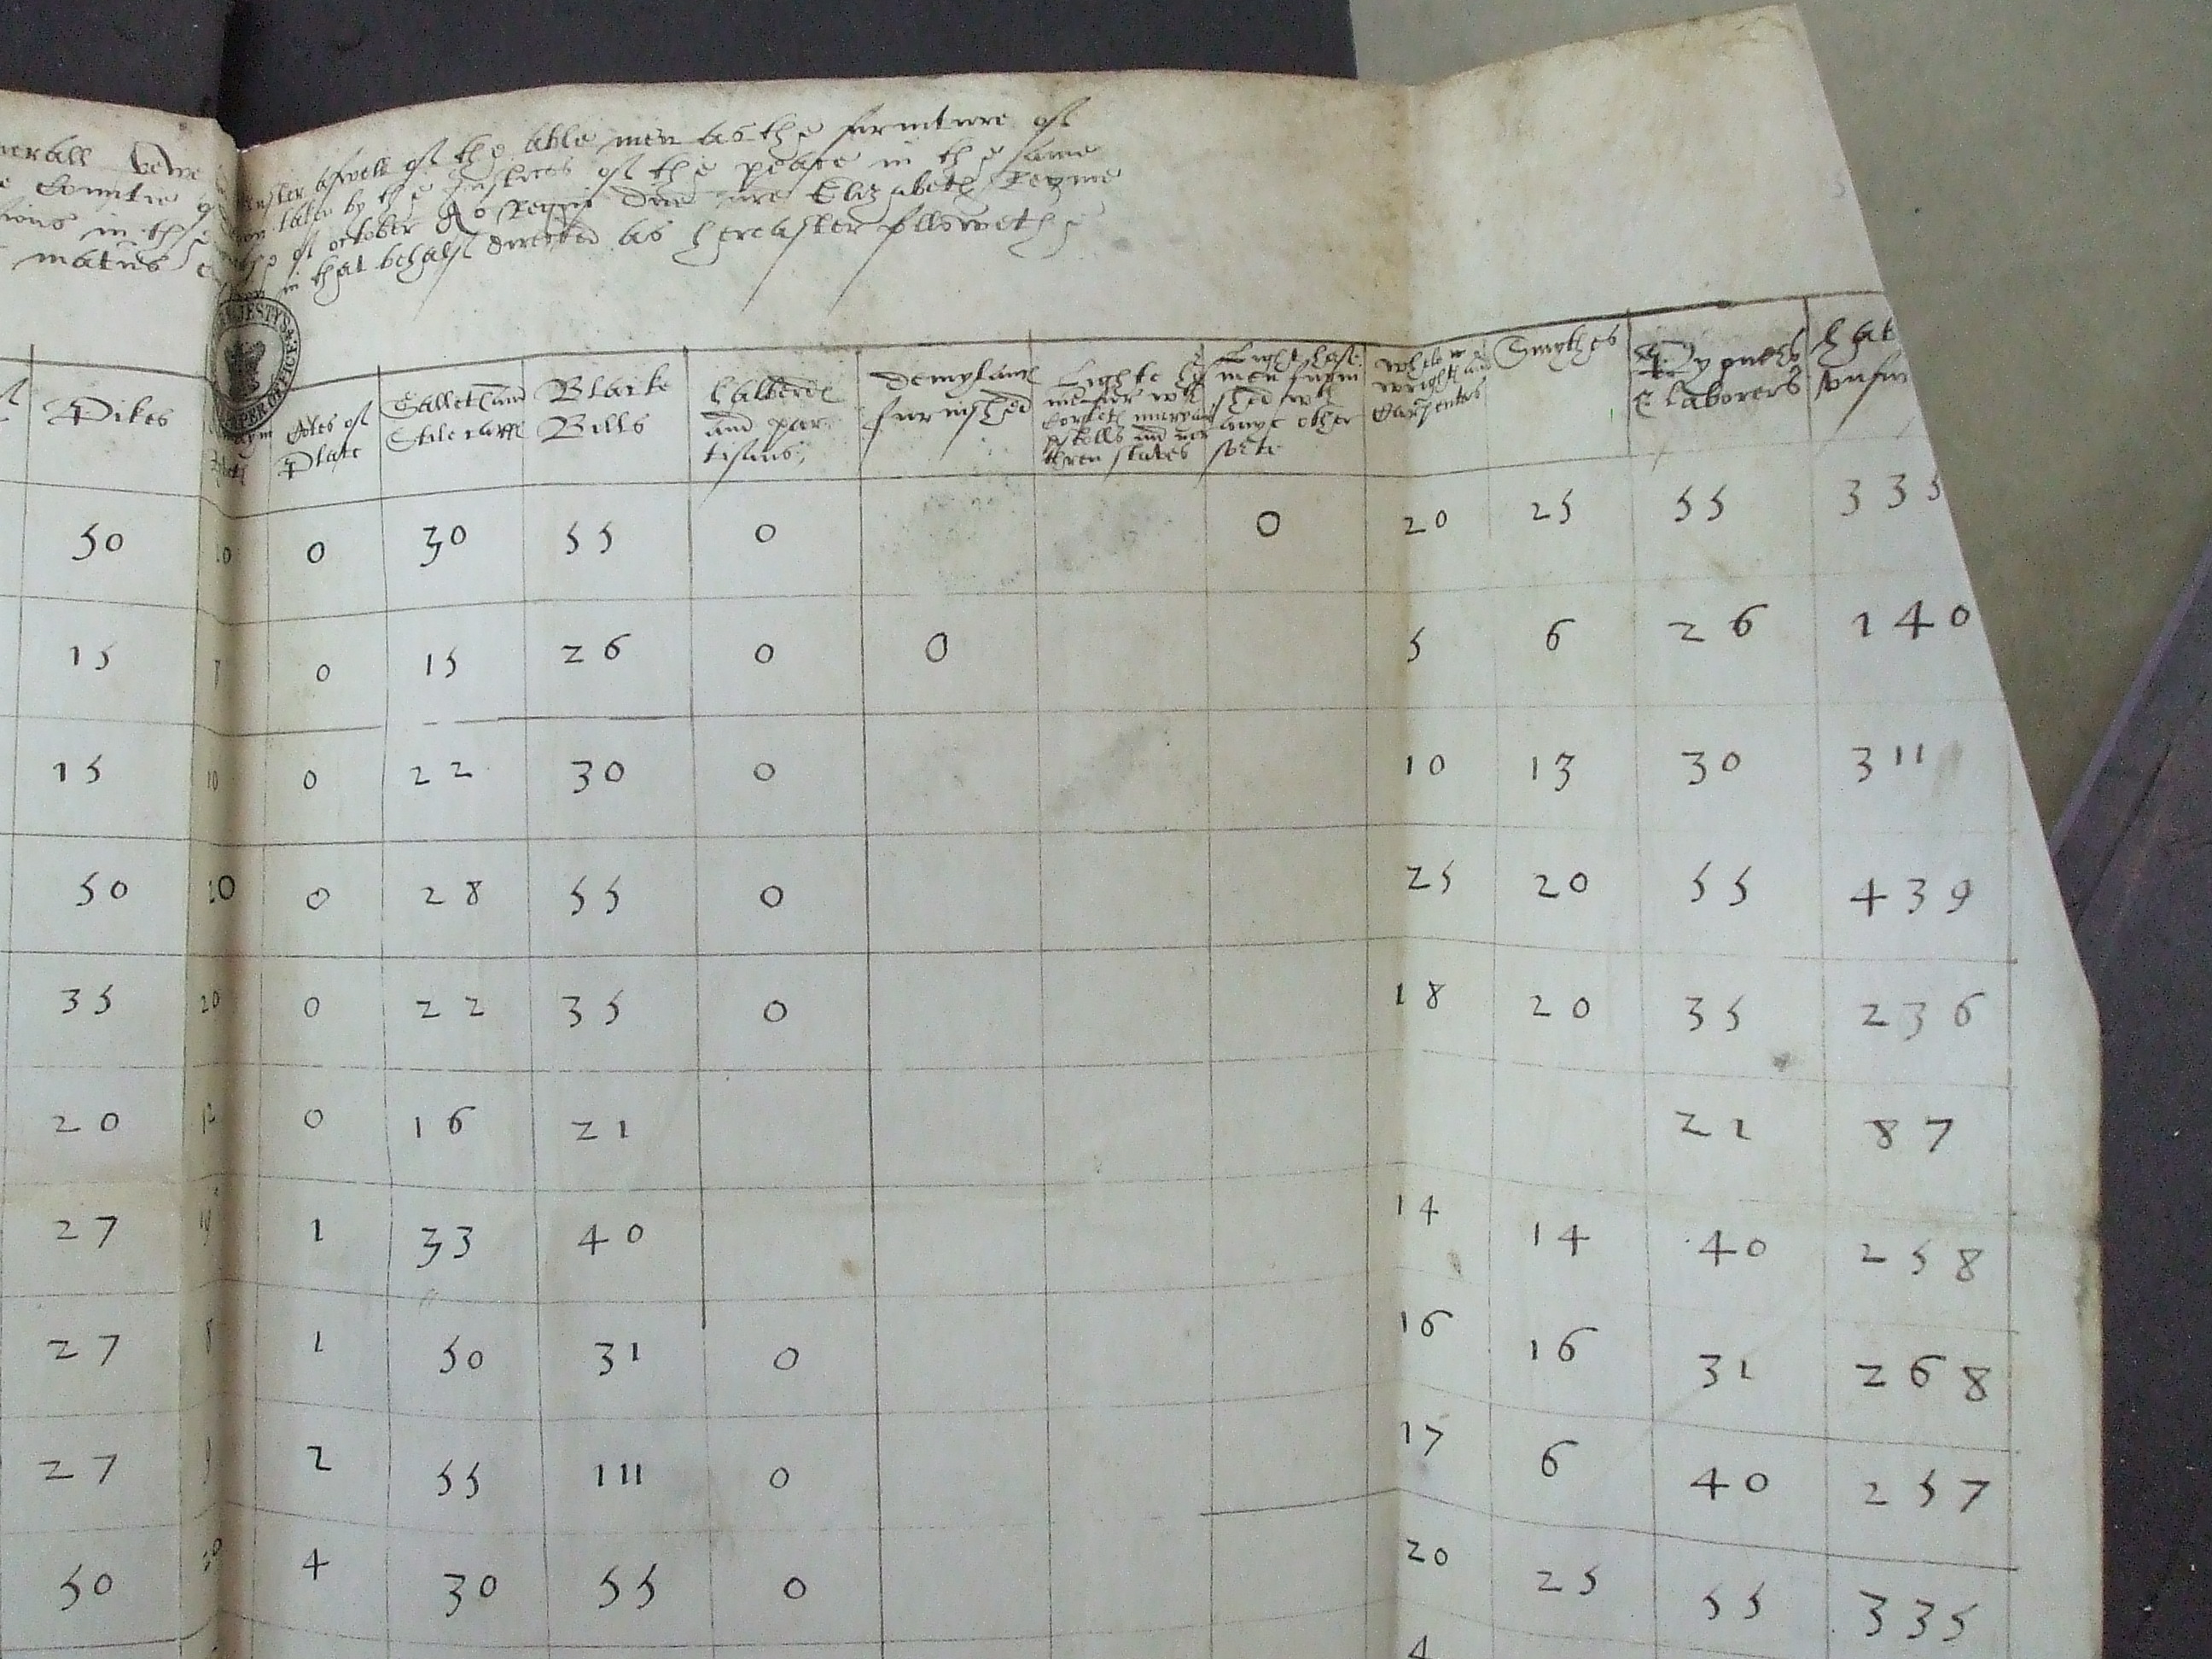 nerall vewe
Muster aswell of the able men as the furniture of
e Countie of
taken by the Justices of the peace in the same
sions in the
of october Ao Regni Dne nre Elizabeth Regine
matns
in that behalf directed as hereafter followethe
JESTYS
PAPER OFFICE
Pikes
Cotes of
Plate
Sallett and
Stile capps
Blacke
Bills
halberde
and par-
tisans,
Demylance
furnished
Lighte
wth
corslett
pistolls and
staves
Light hors
men furni
shed wth
anye other
sorte
Whele
wrights and
Carpenters
Smythes
Pyoners
& laborers
hat
unfur
50 0 30 55 0 0 20 25 55 335
15 0 15 26 0 0 5 6 26 140
15 10 0 22 30 0 10 13 30 311
50 20 0 28 55 0 25 20 55 439
35 20 0 22 35 0 18 20 35 236
20 12 0 16 21 21 87
27 1 33 40 14 14 40 258
27 8 1 50 31 0 16 16 31 268
27 2 55 111 0 17 6 40 257
50 4 30 55 0 20 25 55 335
4